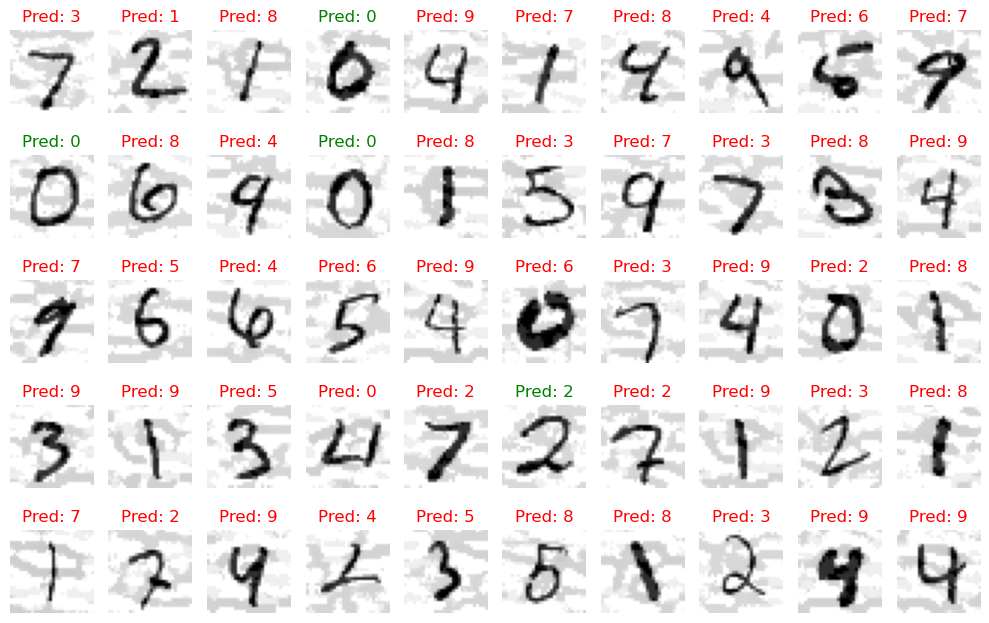 Pred: 3 Pred: 1 Pred: 8 Pred: 0 Pred: 9 Pred: 7 Pred: 8 Pred: 4 Pred: 6 Pred: 7
7 2 1 0 4 1 4 9 5 9
Pred: 0 Pred: 8 Pred: 4 Pred: 0 Pred: 8 Pred: 3 Pred: 7 Pred: 3 Pred: 8 Pred: 9
0 6 9 0 1 5 9 7 3 4
Pred: 7 Pred: 5 Pred: 4 Pred: 6 Pred: 9 Pred: 6 Pred: 3 Pred: 9 Pred: 2 Pred: 8
9 6 6 5 4 0 7 4 0 1
Pred: 9 Pred: 9 Pred: 5 Pred: 0 Pred: 2 Pred: 2 Pred: 2 Pred: 9 Pred: 3 Pred: 8
3 1 3 4 7 2 7 1 2 1
Pred: 7 Pred: 2 Pred: 9 Pred: 4 Pred: 5 Pred: 8 Pred: 8 Pred: 3 Pred: 9 Pred: 9
1 7 4 2 3 5 1 2 4 4